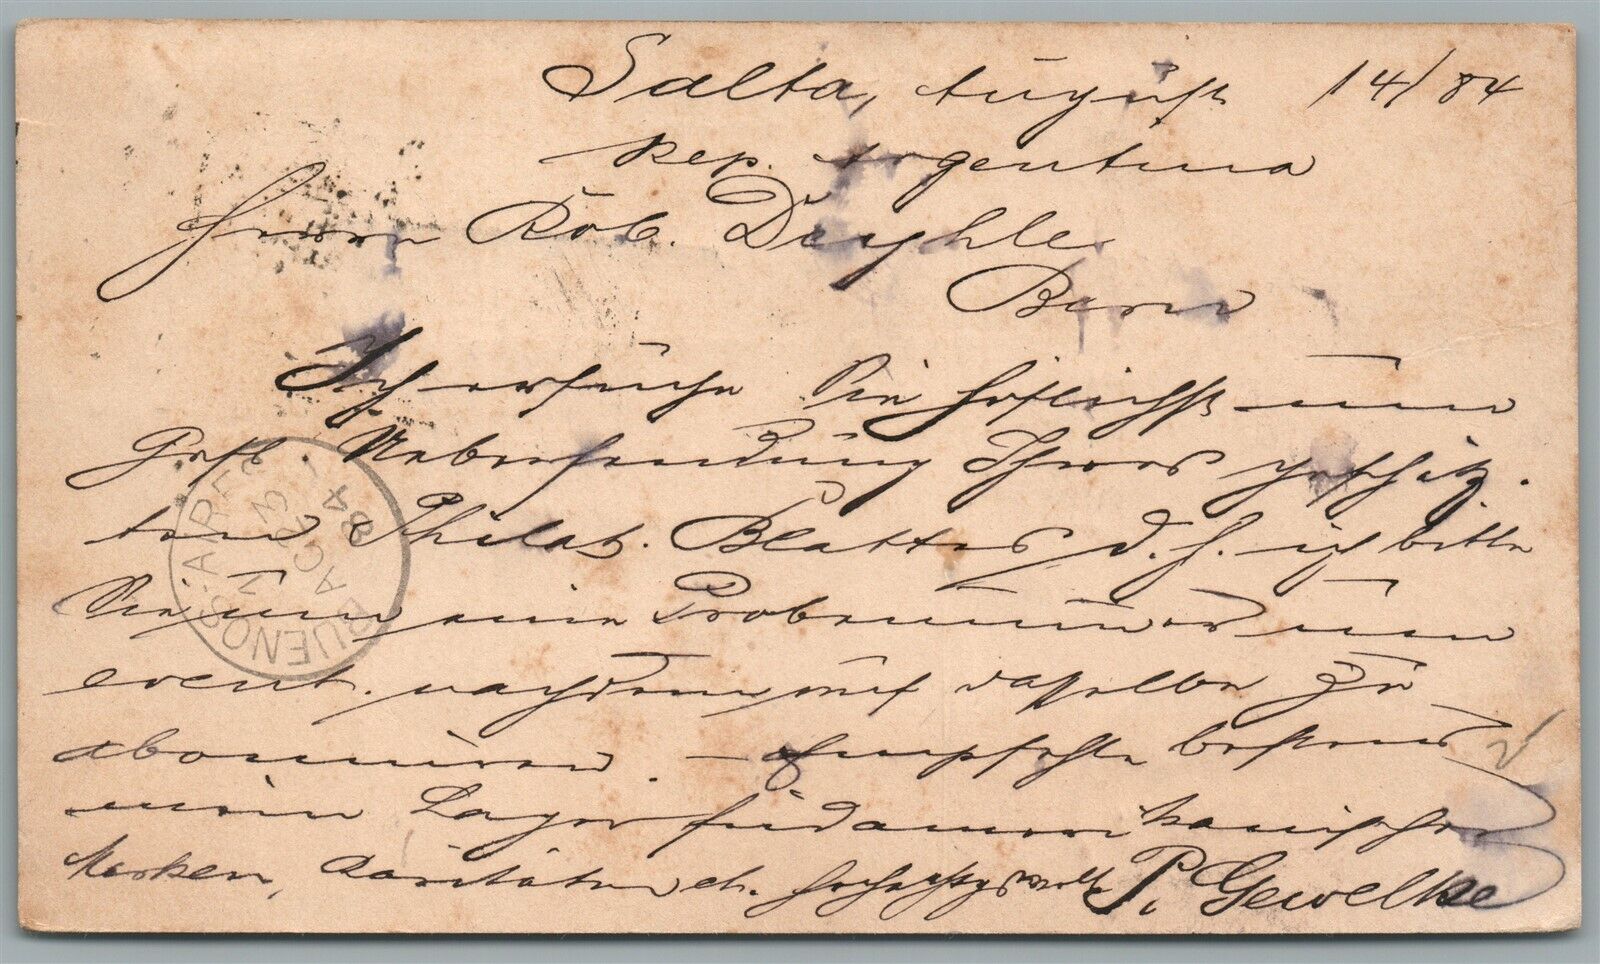 Salta, August 14/84
Rep. Argentina
Herrn Rob. Deyhle
Bern
Ich ersuche Sie höflichst um
gefl. Uebersendung Ihres geschätz.
ten Philat. Blattes, d. h. ich bitte
Sie um eine Probenummer um
event. nachdem auf dasselbe zu
abonniren. — Empfehle bestens
mein Lager südamerikanischer
Marken, Raritäten etc. hochachtungsvoll P. Gewelke
BUENOS AIRES
23
84